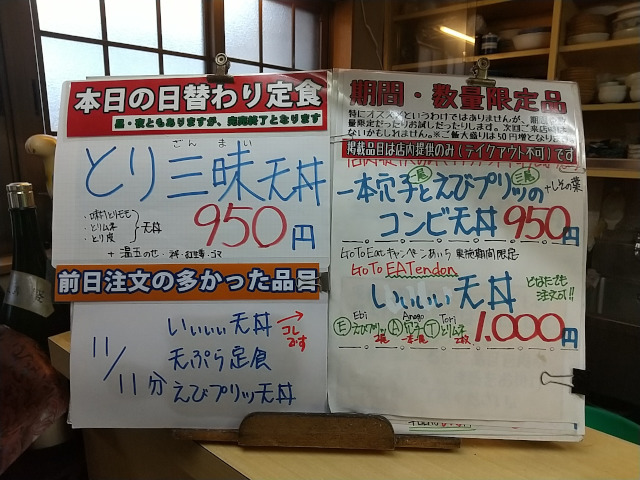 本日の日替わり定食
昼・夜ともありますが、完売終了となります
ざんまい
とり三昧天丼
・味付とりモモ
・とりムネ
・とり皮
天丼
950円
+温玉のせ・ネギ・紅生姜・ゴマ
前日注文の多かった品目
11/11分
いいいい天丼
→コレです
天ぷら定食
えびプリッツ天丼
期間・数量限定品
特にオススメというわけではありませんが、期間
量限定だったりお試しだったりします。次回ご来店
ないかもしれません。※ご飯大盛りは50円増となり
掲載品目は店内提供のみ(テイクアウト不可)です
一本穴子と二尾えびプリッツの三尾
+しその葉
コンビ天丼 950円
GoToEatキャンペーンあいち 実施期間限定
GoTo EATendon
いいいい天丼
どなたでも
注文可!!
Ebi Anago Tori
Ⓔえびプリッツ2尾 Ⓐ穴子一本 Ⓣとりムネ2枚
1,000円